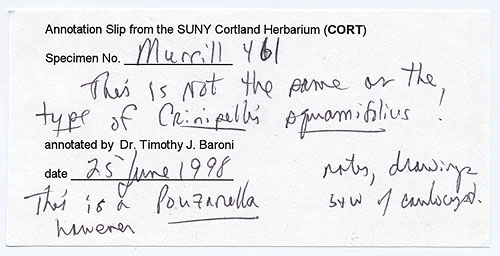 Annotation Slip from the SUNY Cortland Herbarium (CORT)
Specimen No. Murrill 461
This is not the same as the,
type of Crinipellis squamifolius !
annotated by Dr. Timothy J. Baroni
date 25 June 1998
This is a Pouzarella
however
notes, drawings